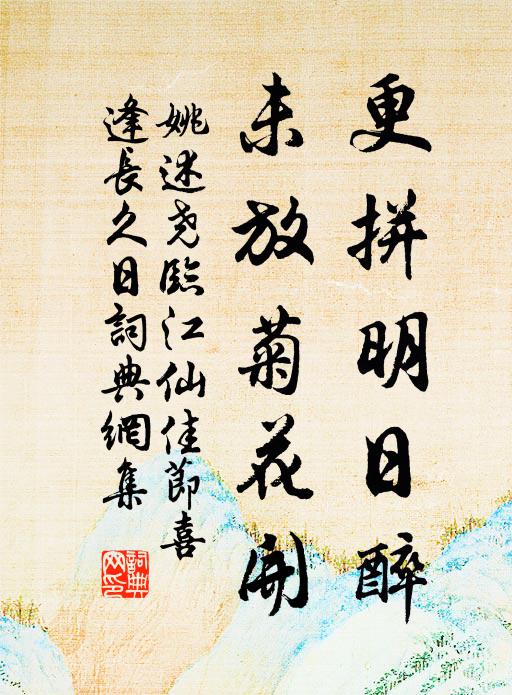 更拼明日醉
未放菊花開
姚述堯臨江仙佳節喜
逢長久日詞典網集
詞典
网印